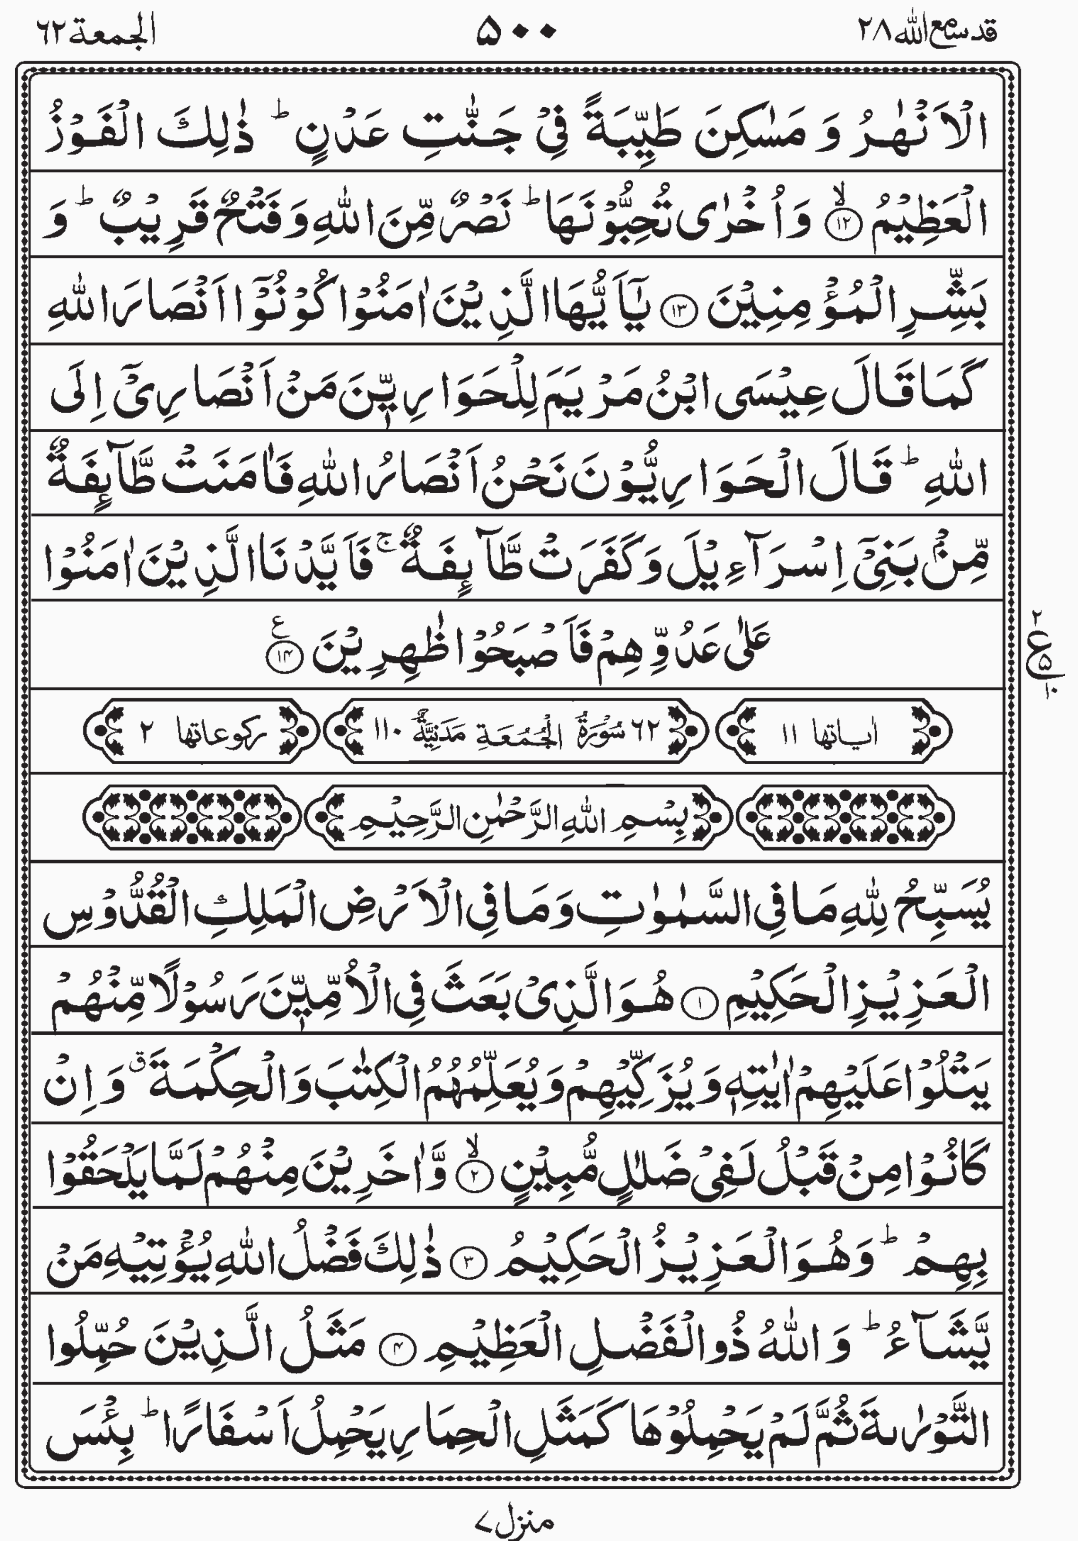 قد سمع الله ٢٨ ۵۰۰ الجمعة ٦٢
الۡاَنۡهٰرُ وَ مَسٰكِنَ طَيِّبَةً فِىۡ جَنّٰتِ عَدۡنٍ ؕ ذٰلِكَ الۡفَوۡزُ
الۡعَظِيۡمُ ۙ‏﴿۱۲﴾ وَاُخۡرٰى تُحِبُّوۡنَهَا ؕ نَصۡرٌ مِّنَ اللّٰهِ وَفَتۡحٌ قَرِيۡبٌ ؕ وَ
بَشِّرِ الۡمُؤۡمِنِيۡنَ ﴿۱۳﴾ يٰۤاَيُّهَا الَّذِيۡنَ اٰمَنُوۡا كُوۡنُوۡۤا اَنۡصَارَ اللّٰهِ
كَمَا قَالَ عِيۡسَى ابۡنُ مَرۡيَمَ لِلۡحَوَارِيّٖنَ مَنۡ اَنۡصَارِىۡۤ اِلَى
اللّٰهِ ؕ قَالَ الۡحَوَارِيُّوۡنَ نَحۡنُ اَنۡصَارُ اللّٰهِ فَاٰمَنَتۡ طَّآٮِٕفَةٌ
مِّنۡۢ بَنِىۡۤ اِسۡرَآءِيۡلَ وَكَفَرَتۡ طَّآٮِٕفَةٌ ۚ فَاَيَّدۡنَا الَّذِيۡنَ اٰمَنُوۡا
عَلٰى عَدُوِّهِمۡ فَاَصۡبَحُوۡا ظٰهِرِيۡنَ ﴿۱۴﴾ ع
٢ ع ۵ ١٠
اٰیاتها ١١ ٦٢ سُوۡرَةُ الۡجُمُعَةِ مَدَنِيَّةٌ ١١٠ رکوعاتها ٢
بِسۡمِ اللّٰهِ الرَّحۡمٰنِ الرَّحِيۡمِ
يُسَبِّحُ لِلّٰهِ مَا فِى السَّمٰوٰتِ وَمَا فِى الۡاَرۡضِ الۡمَلِكِ الۡقُدُّوۡسِ
الۡعَزِيۡزِ الۡحَكِيۡمِ ﴿۱﴾ هُوَ الَّذِىۡ بَعَثَ فِى الۡاُمِّيّٖنَ رَسُوۡلًا مِّنۡهُمۡ
يَتۡلُوۡا عَلَيۡهِمۡ اٰيٰتِهٖ وَيُزَكِّيۡهِمۡ وَيُعَلِّمُهُمُ الۡكِتٰبَ وَالۡحِكۡمَةَ ۗ وَاِنۡ
كَانُوۡا مِنۡ قَبۡلُ لَفِىۡ ضَلٰلٍ مُّبِيۡنٍ ۙ‏﴿۲﴾ وَّاٰخَرِيۡنَ مِنۡهُمۡ لَمَّا يَلۡحَقُوۡا
بِهِمۡ ؕ وَهُوَ الۡعَزِيۡزُ الۡحَكِيۡمُ ﴿۳﴾ ذٰلِكَ فَضۡلُ اللّٰهِ يُؤۡتِيۡهِ مَنۡ
يَّشَآءُ ؕ وَاللّٰهُ ذُو الۡفَضۡلِ الۡعَظِيۡمِ ﴿۴﴾ مَثَلُ الَّذِيۡنَ حُمِّلُوا
التَّوۡرٰٮةَ ثُمَّ لَمۡ يَحۡمِلُوۡهَا كَمَثَلِ الۡحِمَارِ يَحۡمِلُ اَسۡفَارًا ؕ بِئۡسَ
منزل ٧